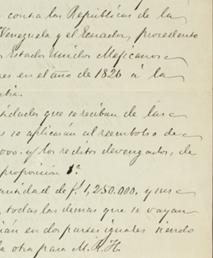 contra las Repúblicas de la
Venezuela y el Ecuador, procedente
Estados Unidos Mejicanos
en el año de 1826 á la
que se reciban de las
se aplicarán al reembolso de
y los réditos devengados, de
proposición 1ª
cantidad de £ 1,250.000. y una
todas las demas que se vayan
en dos partes iguales siendo
la otra para M. R. H.